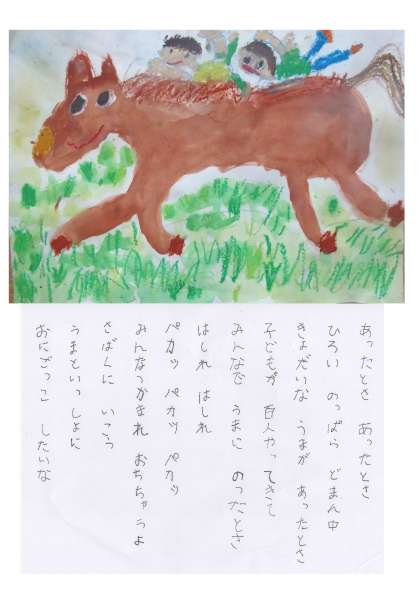 あったとさ あったとさ
ひろい のっぱら どまん中
きょだいな うまが あったとさ
子どもが 百人やってきて
みんなで うまに のったとさ
はしれ はしれ
パカッ パカッ パカッ
みんなつかまれ おちちゃうよ
さばくに いこう
うまといっしょに
おにごっこ したいな